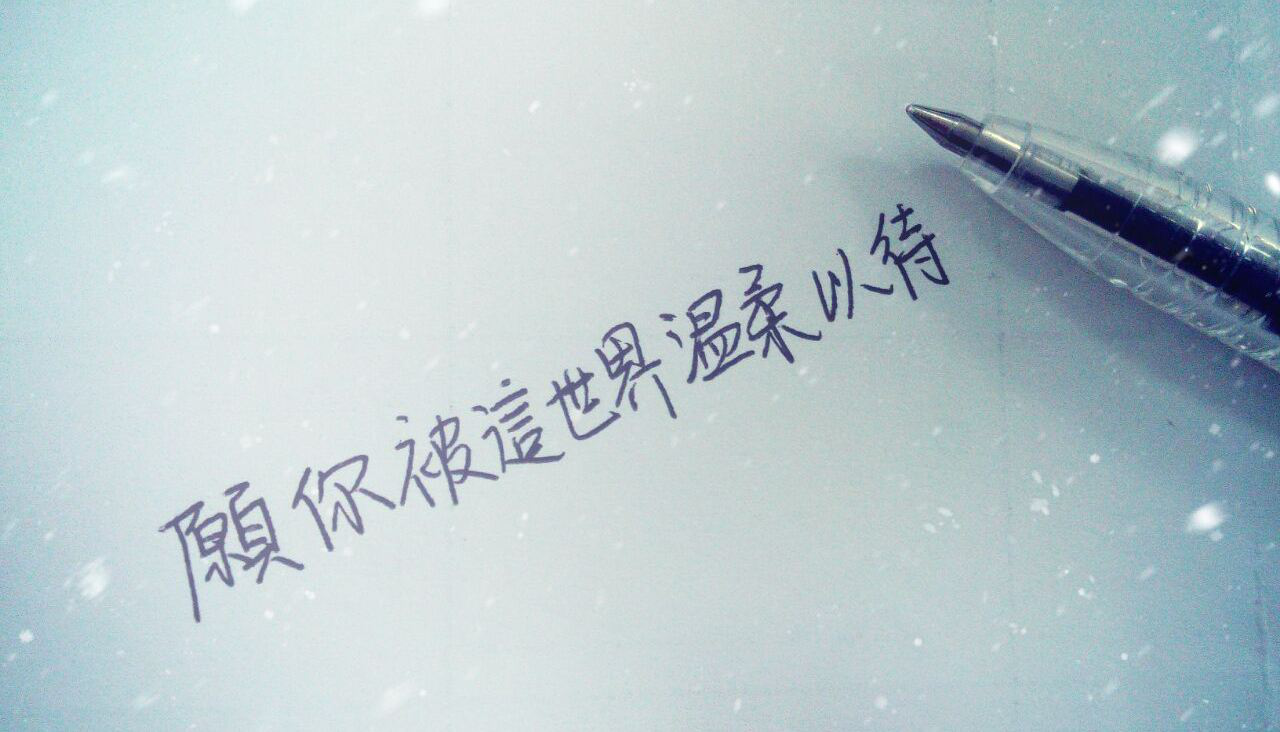 願你被這世界温柔以待